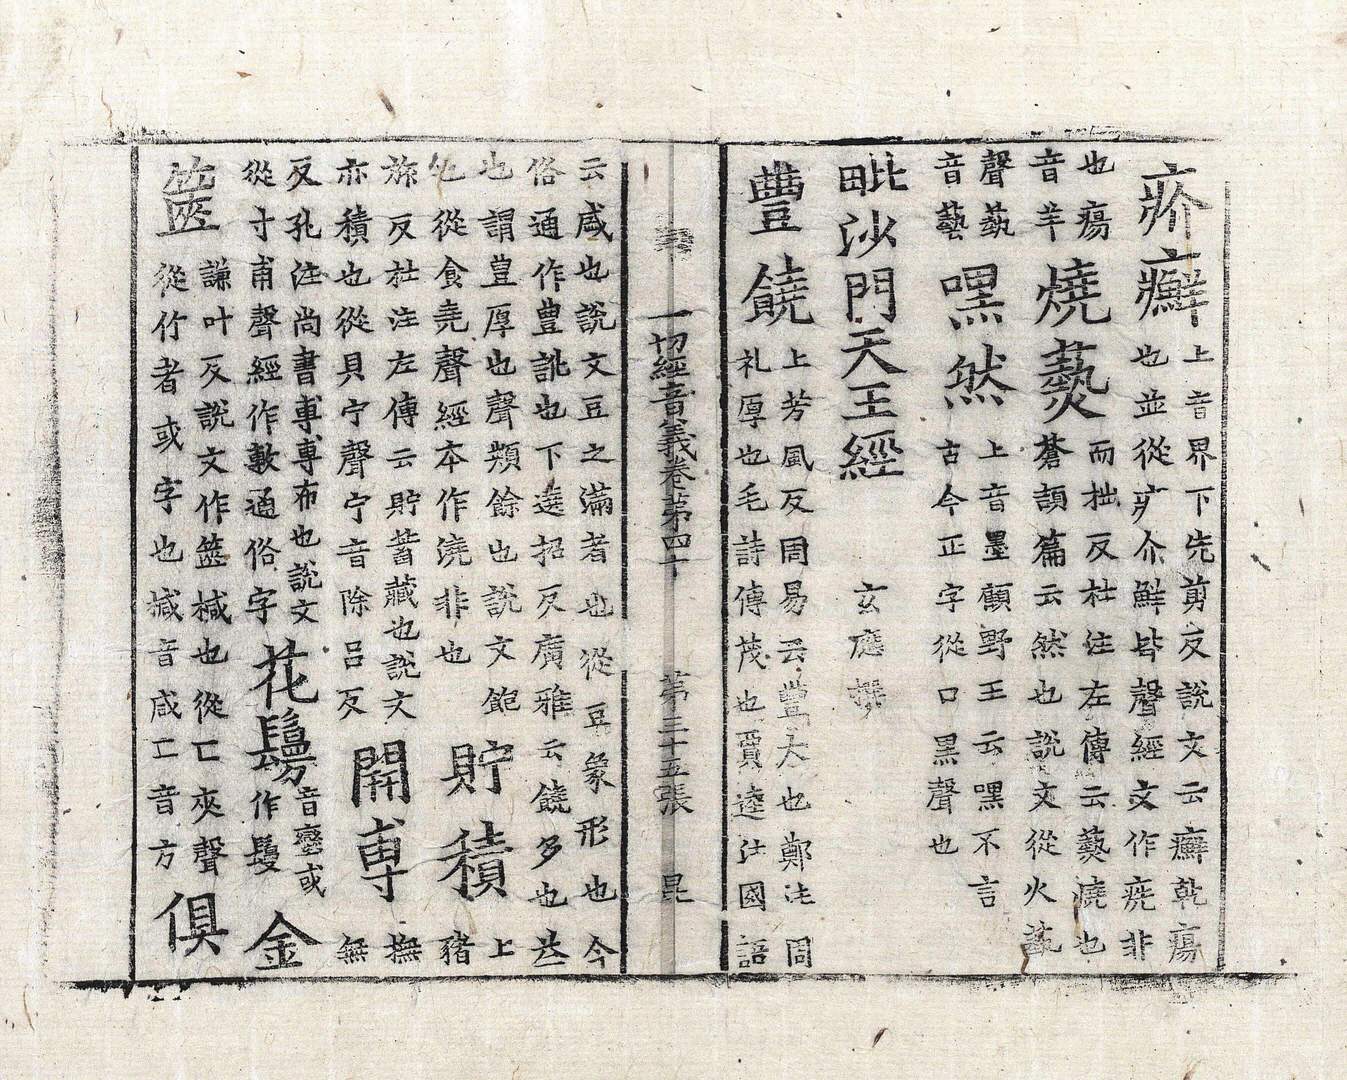 疥癬上音界下先剪反說文云癬乾瘍
也並從疒介鮮皆聲經文作㾌非
也瘍音羊
燒爇而拙反杜注左傳云爇燒也
蒼頡篇云然也說文從火蓺
聲蓺音藝
嘿然上音墨顧野王云嘿不言
古今正字從口黑聲也
毗沙門天王經 玄應撰
豐饒上芳風反周易云豐大也鄭注周
礼厚也毛詩傳茂也賈逵注國語
一切經音義卷第四十 第三十五張 昆
云咸也說文豆之滿者也從豆象形也今
俗通作豊訛也下遶招反廣雅云饒多也𠀤
也謂豊厚也聲類餘也說文飽上
也從食堯聲經本作澆非也
貯積猪
旅反杜注左傳云貯蓄藏也說文
亦積也從貝宁聲宁音除呂反
開尃撫
無
反孔注尚書尃專布也說文
從寸甫聲經作敷通俗字
花鬘音蠻或
作鬘
金
篋謙叶反說文作篋椷也從匚夾聲
從竹者或字也椷音咸匚音方
俱